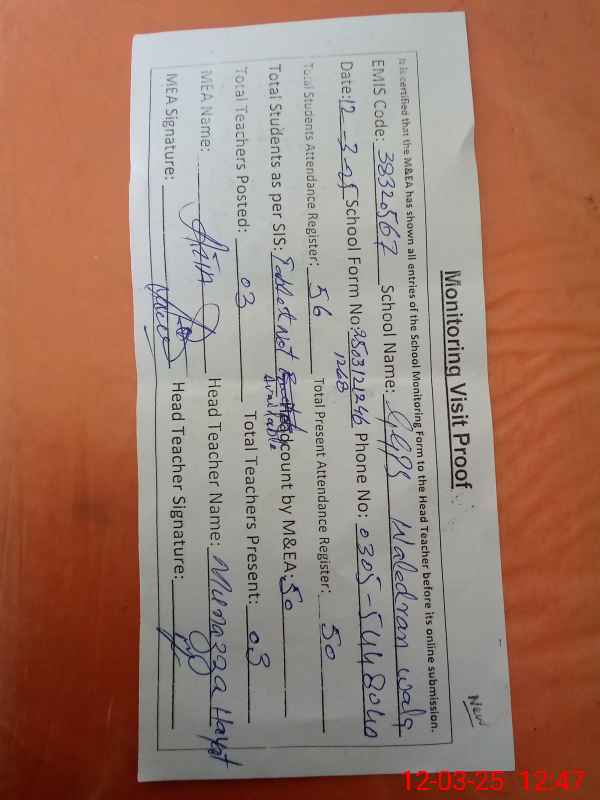 New
Monitoring Visit Proof
It is certified that the M&EA has shown all entries of the School Monitoring Form to the Head Teacher before its online submission.
EMIS Code: 38320567 School Name: GGPS Waledran wala
Date: 12-3-25 School Form No: 2503121246 Phone No: 0305-5448040
1268
Total Students Attendance Register: 56 Total Present Attendance Register: 50
Total Students as per SIS: Tablet Not Headcount by M&EA: 50
Available
Total Teachers Posted: 03 Total Teachers Present: 03
MEA Name: Head Teacher Name: Munazza Hayat
MEA Signature: Head Teacher Signature:
12-03-25 12:47